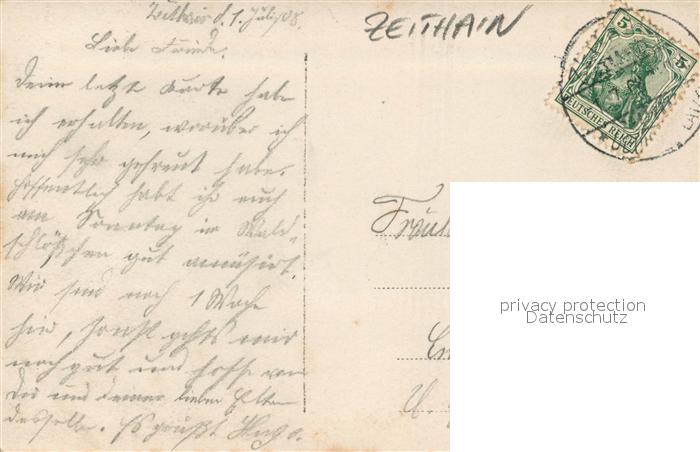 Zeithain d. 1. Juli 08.
ZEITHAIN
5 5
DEUTSCHES REICH
Liebe Frieda.
Deine letzte Karte habe
ich erhalten, worüber ich
mich sehr gefreut habe.
Hoffentlich habt ihr euch
am Sonntag im Wald-
schlößchen gut amüsirt.
Wir sind noch 1 Woche
hier, sonst gehts mir
noch gut und hoffe von
Dir und deinen lieben Eltern
dasselbe. Es grüßt Hugo.
Fräul
privacy protection
Datenschutz